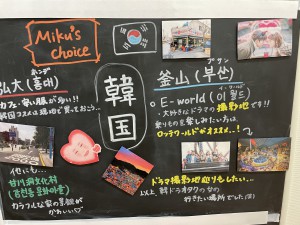 Miku's
choice
韓国
ホンデ
弘大(홍대)
カフェ・安い服が多い!!
韓国コスメは現地で買っておう…
他にも…
甘川洞文化村
(감천동 문화마을)
カラフルな家の景観が
かわいい♡
プサン
釜山(부산)
○E-world(이월드)
・大好きなドラマの撮影地です!!
乗りもの系を楽しみたい方は
ロッテワールドがオススメ..!
ドラマ撮影地巡りもしたい…
以上 韓ドラオタクの
行きたい場所でした